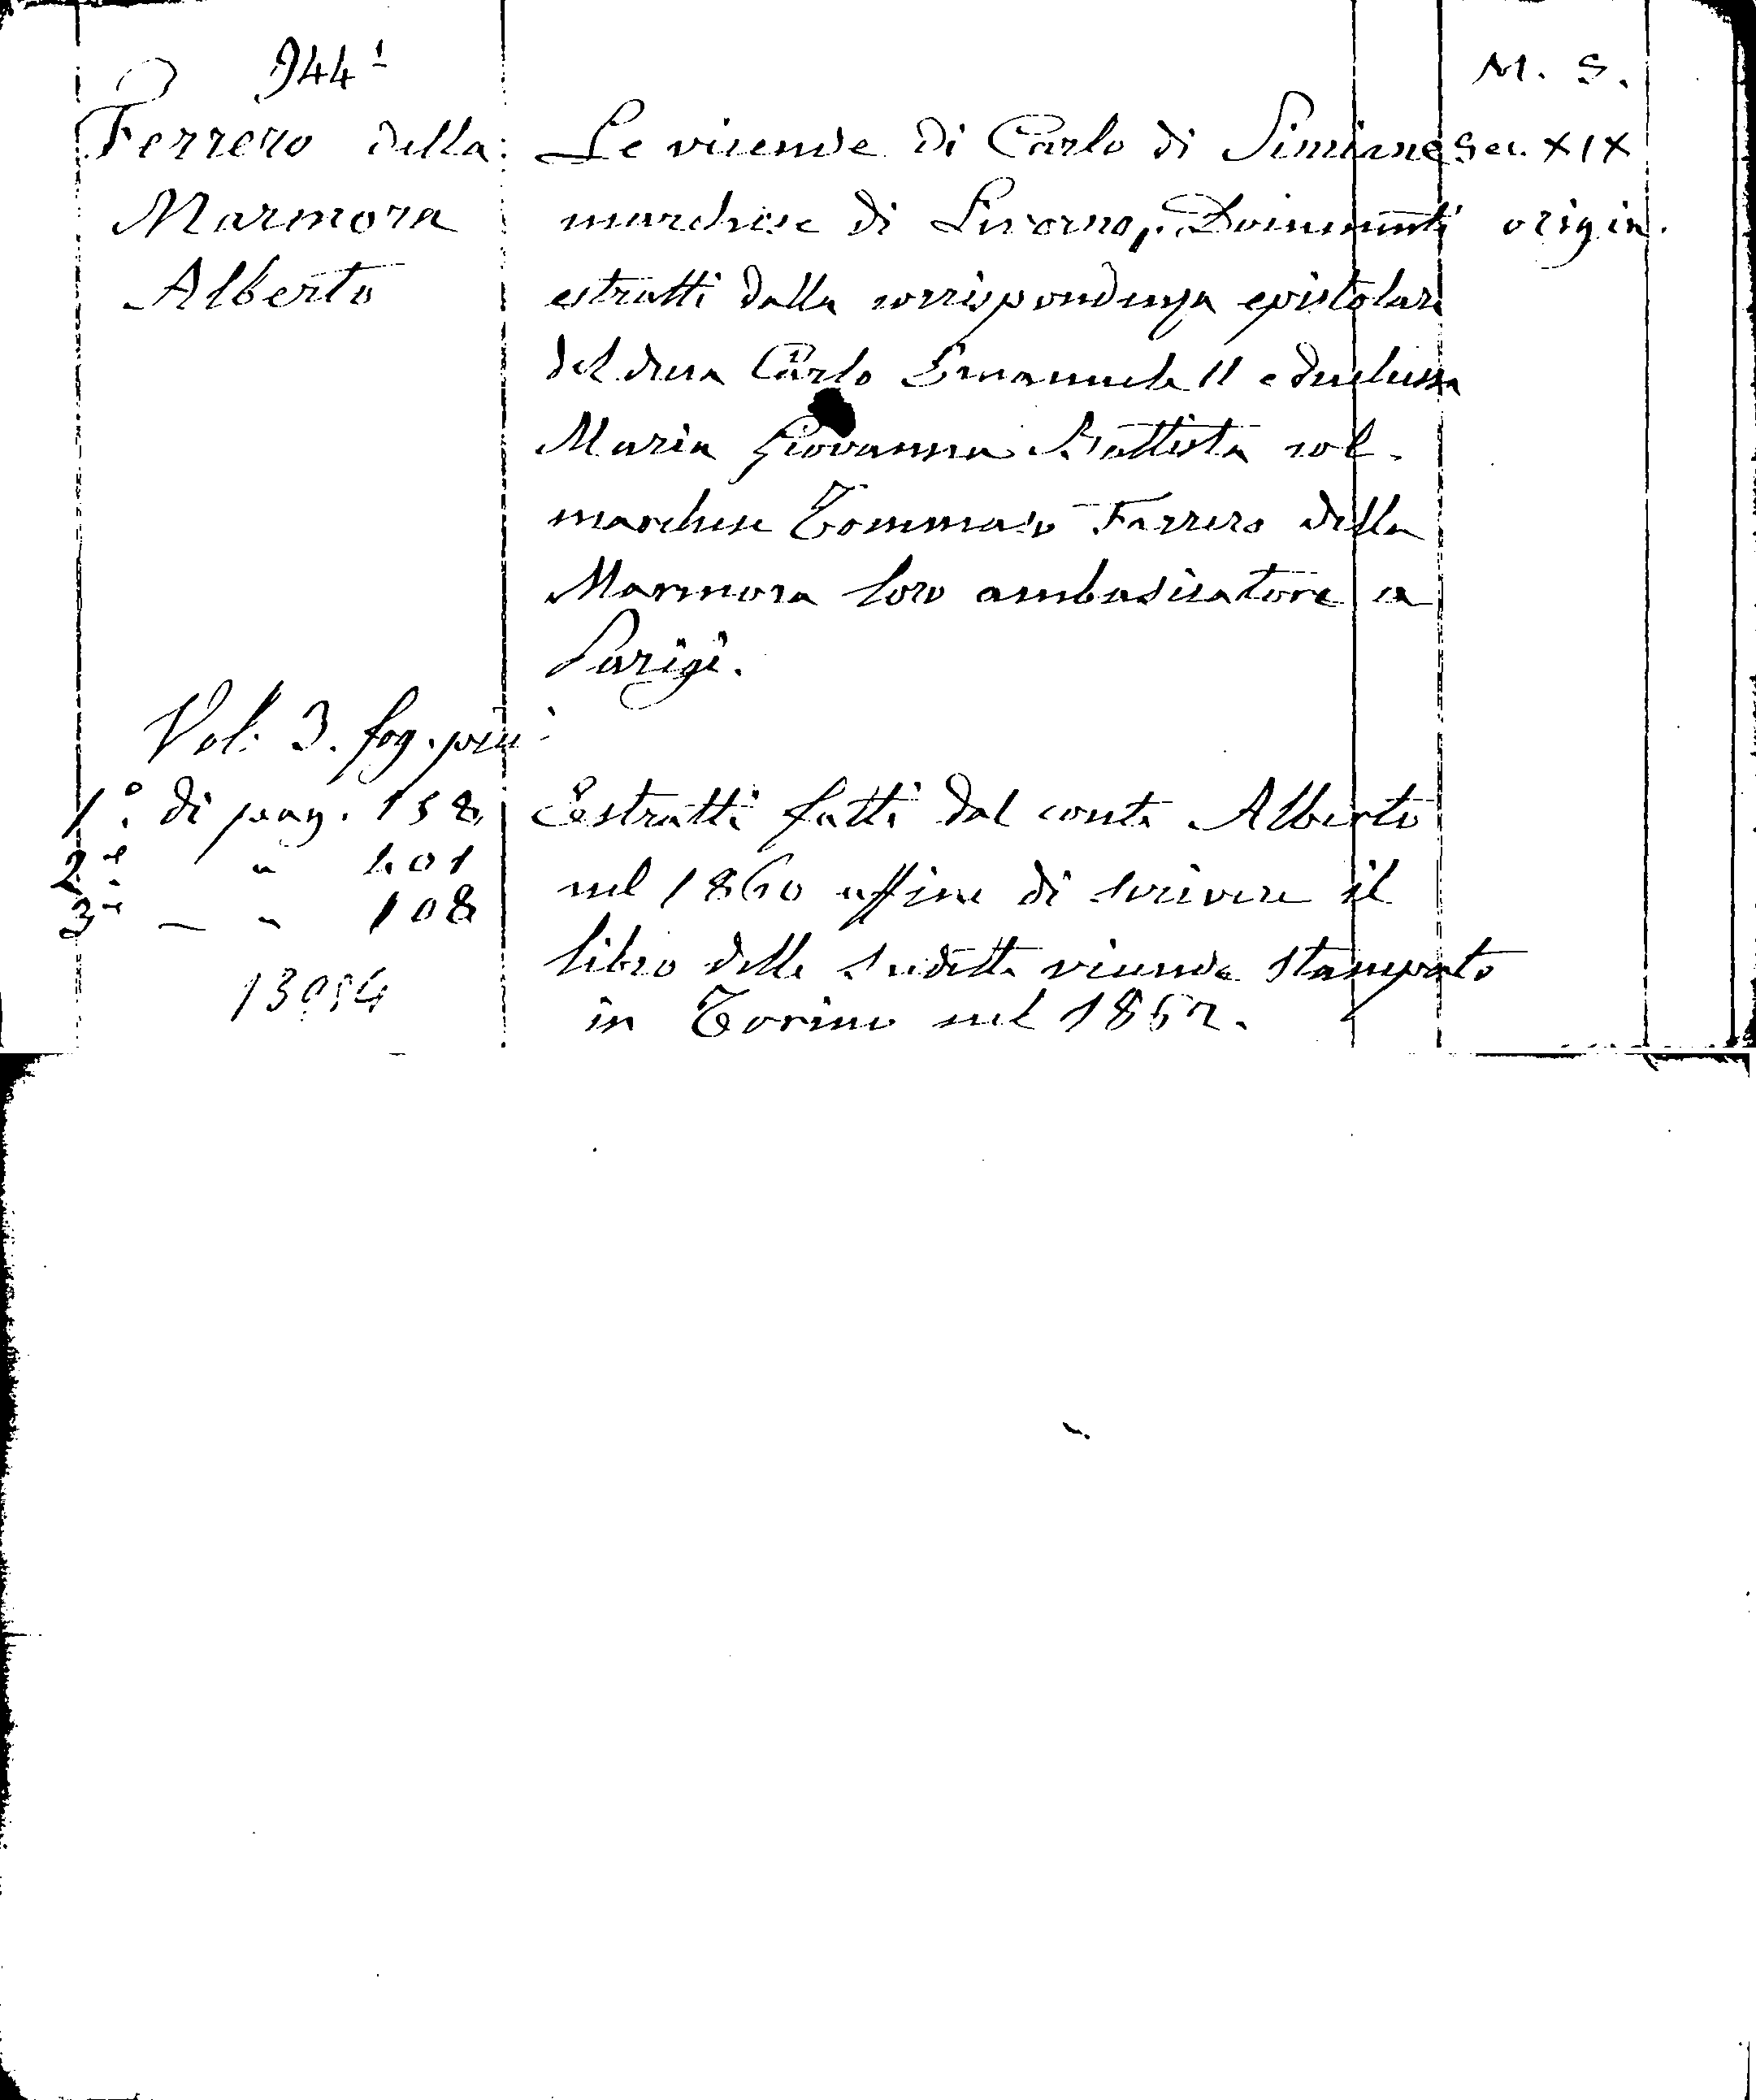 944¹
M. S.
Ferrero della
Marmora
Alberto
Le vicende di Carlo di Simiane
marchese di Livorno, Documenti
estratti dalla corrispondenza epistolare
del duca Carlo Emanuele II e duchessa
Maria Giovanna Battista col
marchese Tommaso Ferrero della
Marmora loro ambasciatore a
Parigi.
Sec. XIX
origin.
Vol. 3. fog. picc
1º. di pag. 158
2º " 201
3º — " 108
13954
Estratti fatti dal conte Alberto
nel 1860 affine di scrivere il
libro delle sudette vicende stampato
in Torino nel 1862.